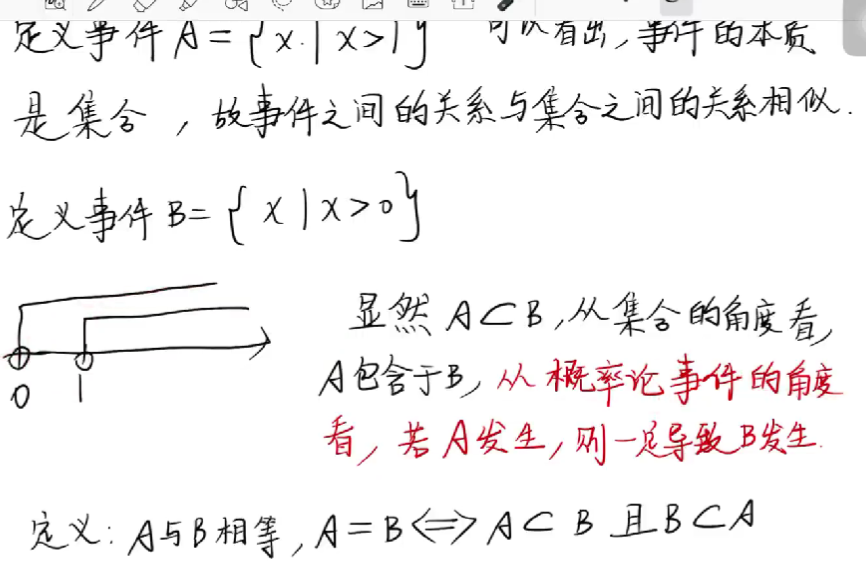 定义事件 A={x|x>1} 可以看出,事件的本质
是集合,故事件之间的关系与集合之间的关系相似.
定义事件 B={x|x>0}
显然 A⊂B,从集合的角度看,
A包含于B,从概率论事件的角度
看,若A发生,则一定导致B发生.
0 1
定义:A与B相等,A=B⟺A⊂B且B⊂A